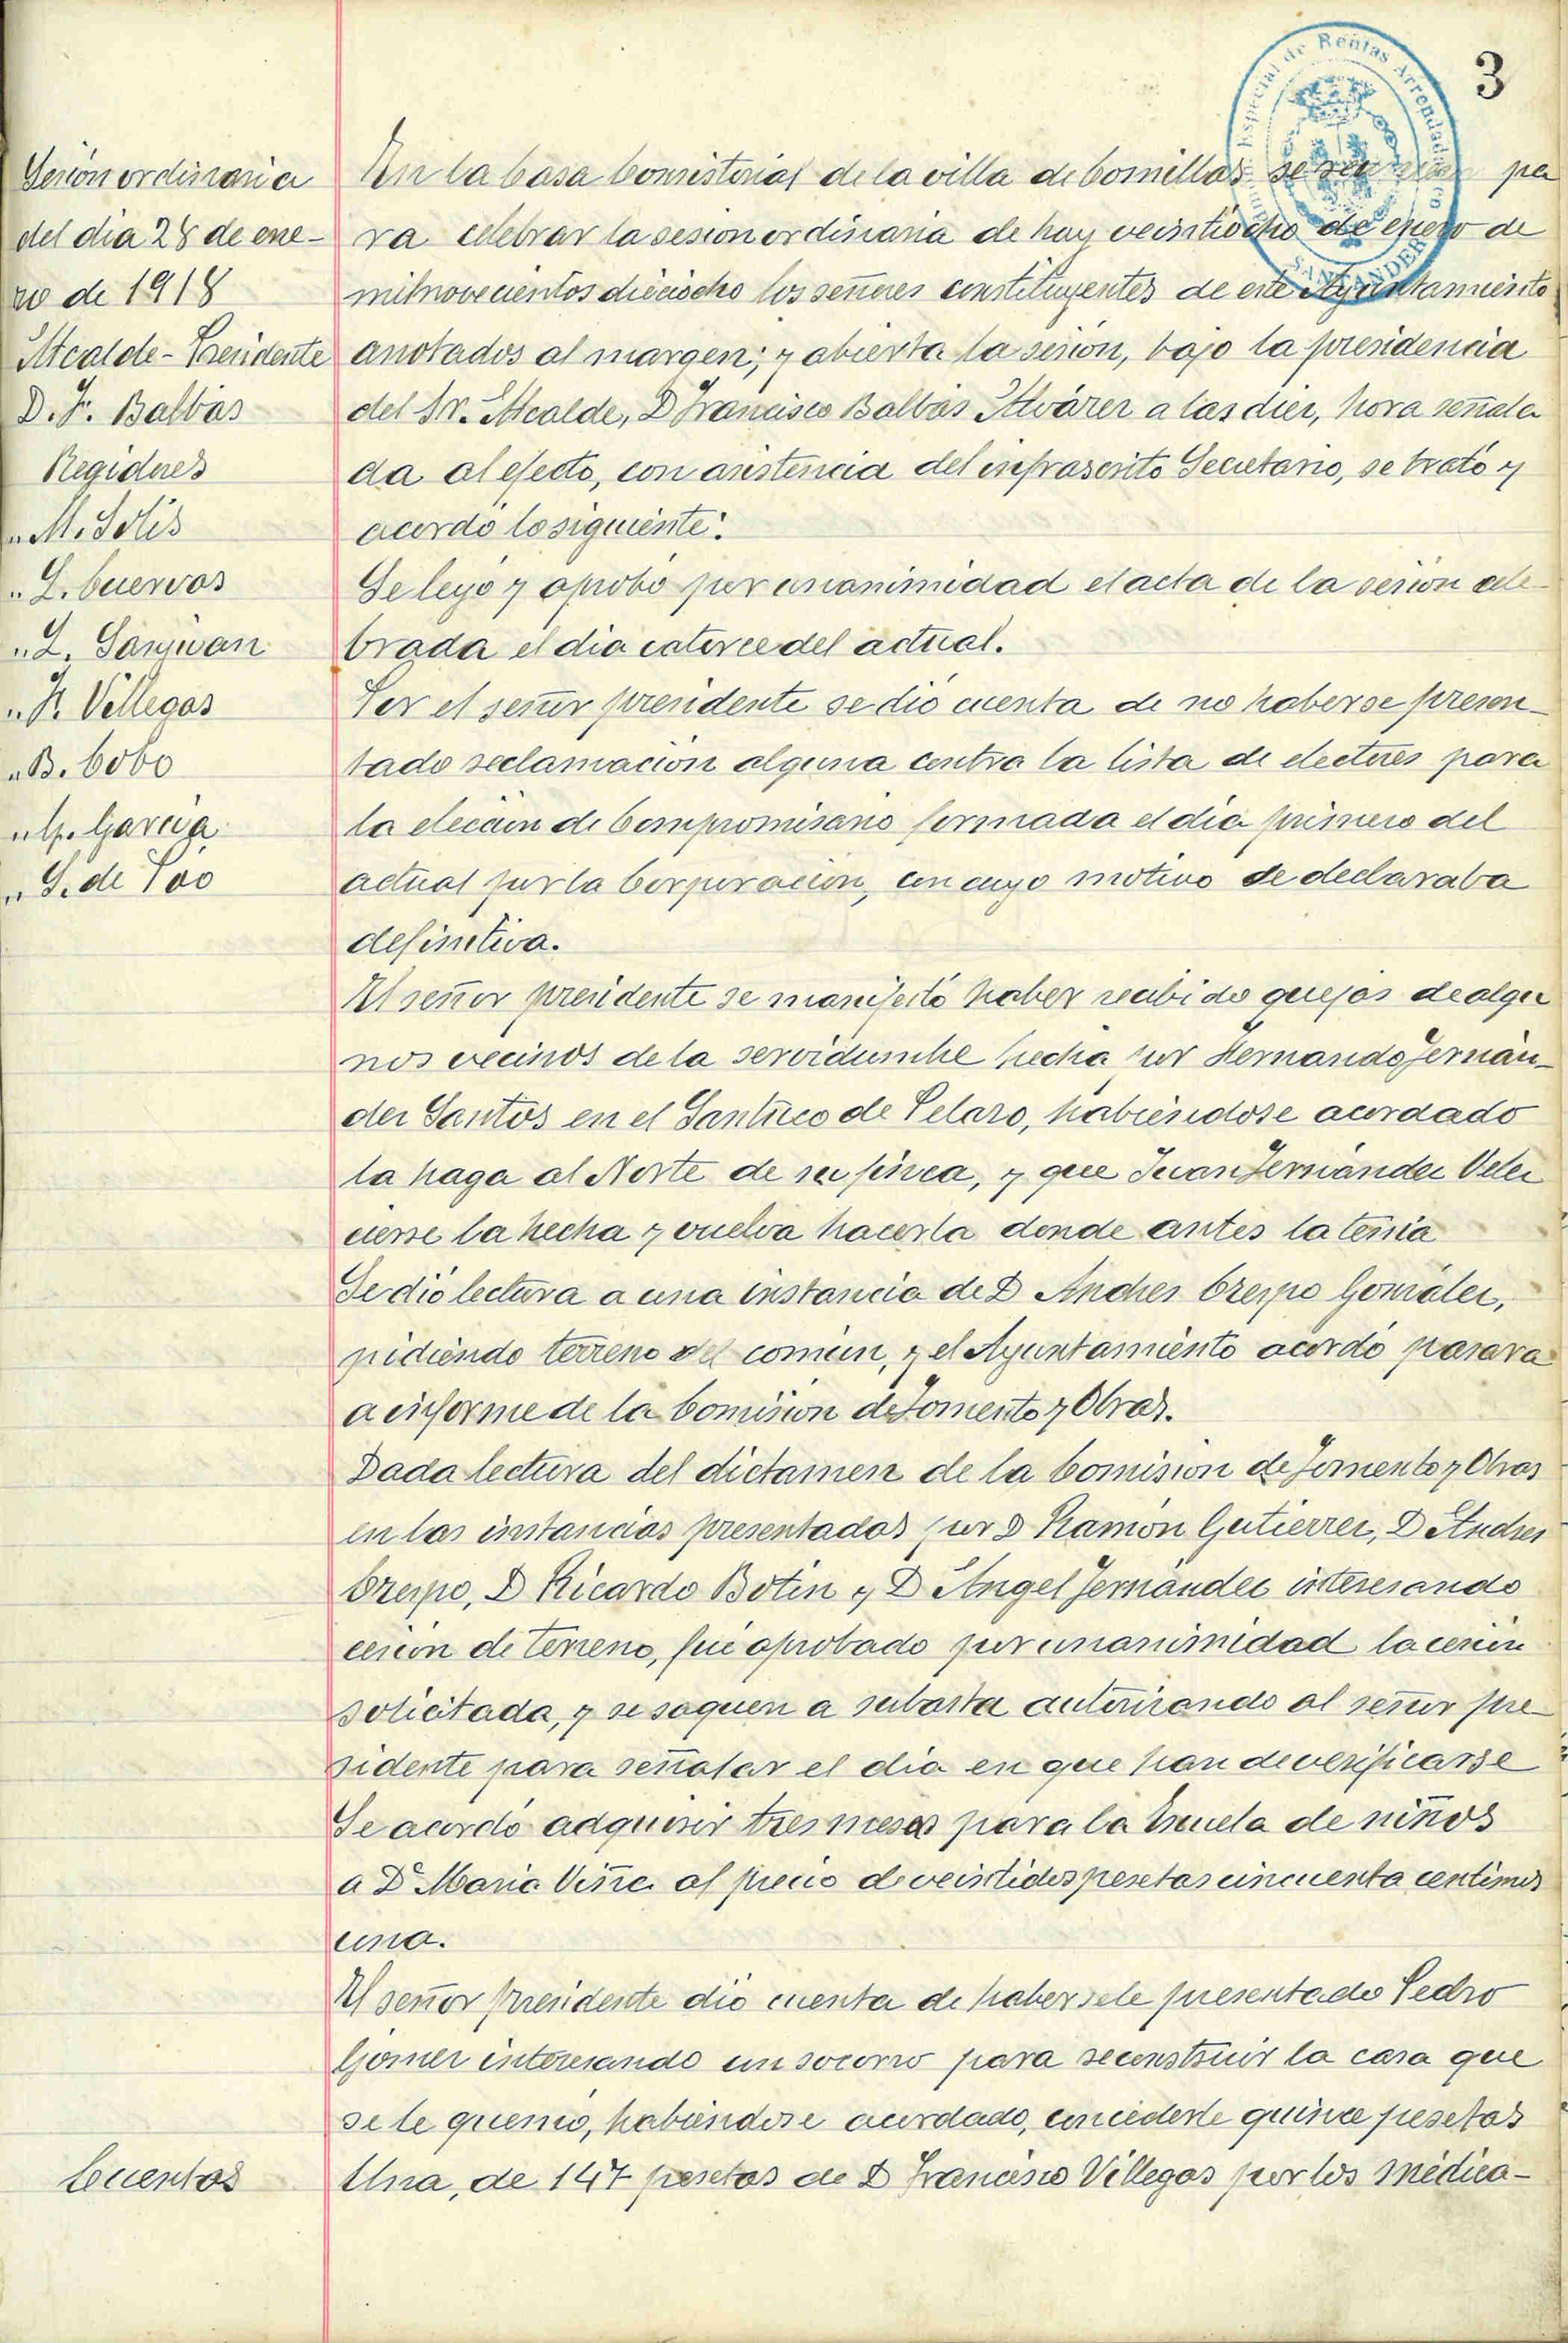 3
Especial de Rentas Arrendadas
SANTANDER
Sesión ordinaria
del dia 28 de ene-
ro de 1918
Alcalde-Presidente
D. F. Balbás
Regidores
" M. Solis
" I. Cuervas
" I. Sanjuan
" F. Villegas
" B. Cobo
" G. García
" S. de Poo
En la Casa Consistorial de la villa de Comillas se reunieron pa
ra celebrar la sesion ordinaria de hoy veintiocho de enero de
mil novecientos dieciocho los señores constituyentes de este Ayuntamiento
anotados al margen; y abierta la sesión, bajo la presidencia
del Sr. Alcalde, D Francisco Balbás Alvárez a las diez, hora señala
da al efecto, con asistencia del infrascrito Secretario, se trató y
acordó lo siguiente:
Se leyó y aprobó por unanimidad el acta de la sesion cele-
brada el dia catorce del actual.
Por el señor presidente se dió cuenta de no haberse presen-
tado reclamación alguna contra la lista de electores para
la elección de Compromisario formada el dia primero del
actual por la Corporación, con cuyo motivo se declaraba
definitiva.
El señor presidente se manifestó haber recibido quejas de algu
nos vecinos de la servidumbre hecha por Hernando Fernán-
dez Santos en el Santuco de Velaro, habiéndose acordado
la haga al Norte de su finca, y que Juan Fernández Velez
cierre la hecha y vuelva hacerla donde antes la tenía
Se dió lectura a una instancia de D Andres Crespo González,
pidiendo terreno del común, y el Ayuntamiento acordó pasara
a informe de la Comisión de Fomento y Obras.
Dada lectura del dictamen de la Comision de Fomento y Obras
en las instancias presentadas por D Ramón Gutierrez, D Andres
Crespo, D Ricardo Botin y D Angel Fernández interesando
cesion de terreno, fue aprobado por unanimidad la cesión
solicitada, y se saquen a subasta autorizando al señor pre-
sidente para señalar el dia en que han de verificarse
Se acordó adquirir tres mesas para la Escuela de niños
a Dª Maria Viña al precio de veintidos pesetas cincuenta centimos
una.
El señor presidente dió cuenta de habersele presentado Pedro
Gómez interesando un socorro para reconstruir la casa que
se le quemó, habiéndose acordado, concederle quince pesetas
Cuentas
Una, de 147 pesetas de D Francisco Villegas por los médica-